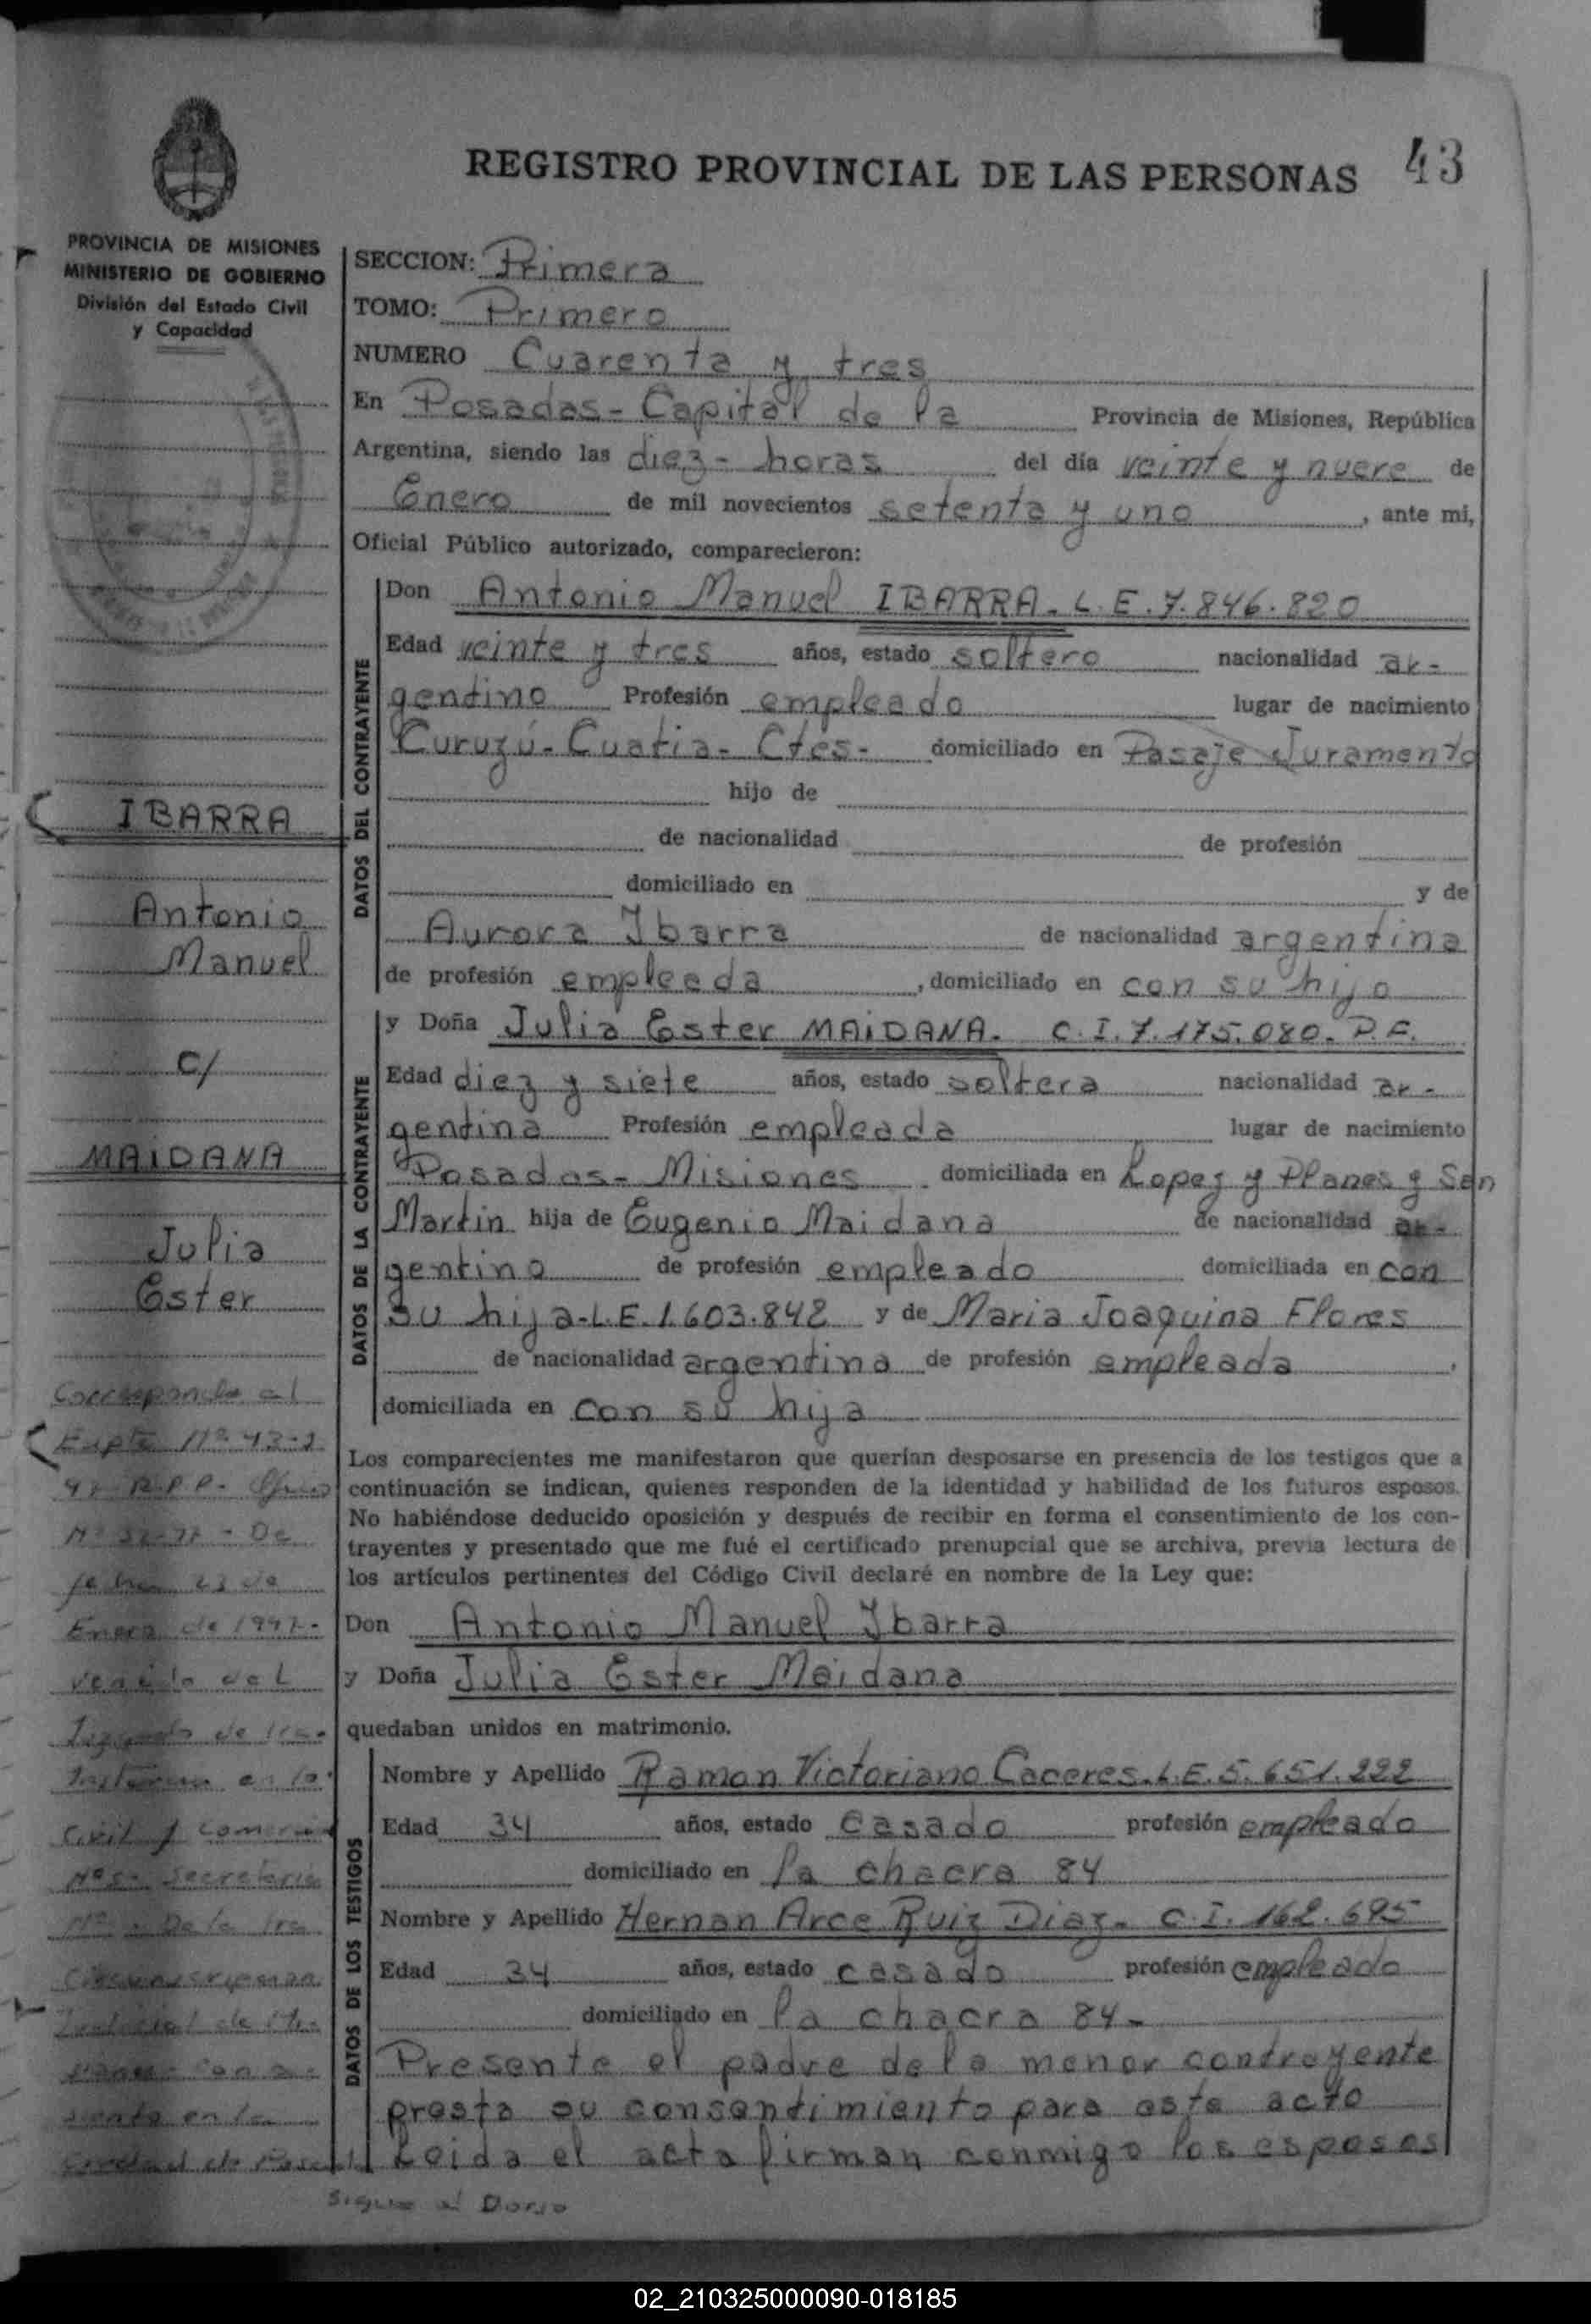 REGISTRO PROVINCIAL DE LAS PERSONAS 43
PROVINCIA DE MISIONES
MINISTERIO DE GOBIERNO
División del Estado Civil
y Capacidad
SECCION: Primera
TOMO: Primero
NUMERO Cuarenta y tres
En Posadas - Capital de la Provincia de Misiones, República
Argentina, siendo las diez - horas del día veinte y nueve de
Enero de mil novecientos setenta y uno, ante mi,
Oficial Público autorizado, comparecieron:
DATOS DEL CONTRAYENTE
Don Antonio Manuel IBARRA - L.E. 7.846.820
Edad veinte y tres años, estado soltero nacionalidad ar-
gentino Profesión empleado lugar de nacimiento
Curuzú - Cuatia - Ctes - domiciliado en Pasaje Juramento
hijo de
de nacionalidad de profesión
domiciliado en y de
Aurora Ibarra de nacionalidad argentina
de profesión empleada, domiciliado en con su hijo
DATOS DE LA CONTRAYENTE
y Doña Julia Ester MAIDANA - C.I. 7.175.080 - P.F.
Edad diez y siete años, estado soltera nacionalidad ar-
gentina Profesión empleada lugar de nacimiento
Posadas - Misiones domiciliada en Lopez y Planes y San
Martin hija de Eugenio Maidana de nacionalidad ar-
gentino de profesión empleado domiciliada en con
su hija - L.E. 1.603.842 y de Maria Joaquina Flores
de nacionalidad argentina de profesión empleada,
domiciliada en con su hija
Los comparecientes me manifestaron que querían desposarse en presencia de los testigos que a
continuación se indican, quienes responden de la identidad y habilidad de los futuros esposos.
No habiéndose deducido oposición y después de recibir en forma el consentimiento de los con-
trayentes y presentado que me fué el certificado prenupcial que se archiva, previa lectura de
los artículos pertinentes del Código Civil declaré en nombre de la Ley que:
Don Antonio Manuel Ibarra
y Doña Julia Ester Maidana
quedaban unidos en matrimonio.
DATOS DE LOS TESTIGOS
Nombre y Apellido Ramon Victoriano Caceres - L.E. 5.651.222
Edad 34 años, estado casado profesión empleado
domiciliado en la chacra 84
Nombre y Apellido Hernan Arce Ruiz Diaz - C.I. 162.695
Edad 34 años, estado casado profesión empleado
domiciliado en la chacra 84 -
Presente el padre de la menor contrayente
presta su consentimiento para este acto
Leida el acta firman conmigo los esposos
IBARRA
Antonio
Manuel
C/
MAIDANA
Julia
Ester
Corresponde al
Expte Nº
R.P.P. - Oficio
Nº - De
fecha 23 de
Enero de
venido del
Juzgado de 1ra
Instancia en lo
Civil y Comercial
Secretaria
Nº - De la 1ra
Circunscripcion
Judicial de
con a-
siento en la
Ciudad de
Sigue al Dorso
02_210325000090-018185